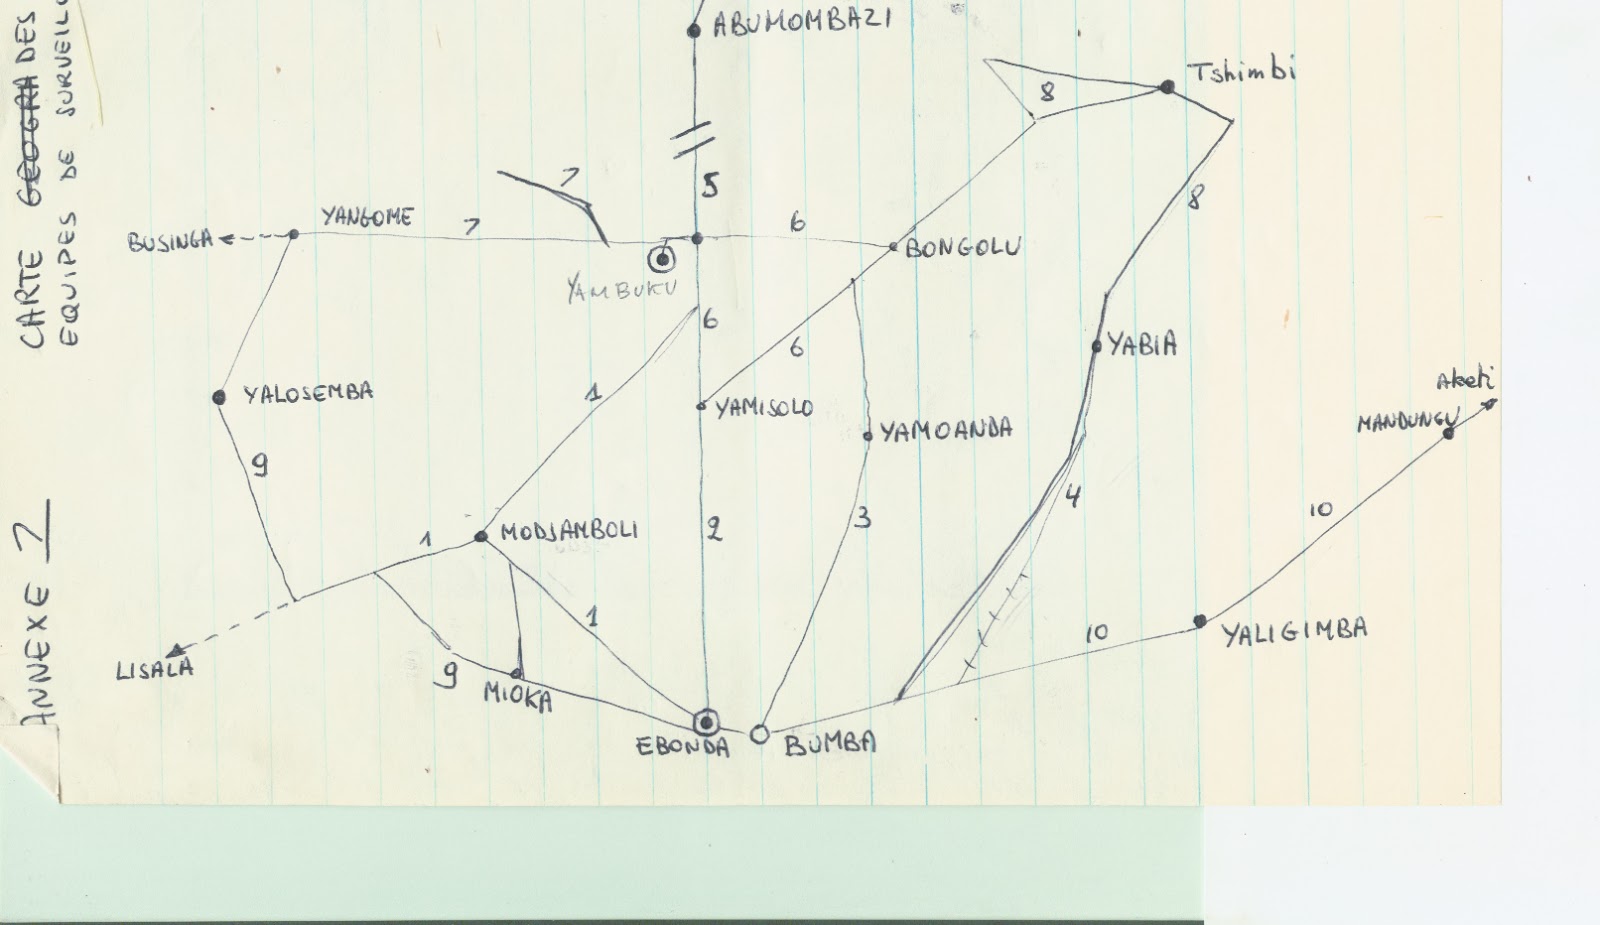 ANNEXE 7 CARTE GEOGRA DES
EQUIPES DE
ABUMOMBAZI
Tshimbi
8
7
5
8
YANGOME
BUSINGA
7
6
BONGOLU
YAMBUKU
6
6
YABIA
YALOSEMBA
1
YAMISOLO
Aketi
MANDUNGU
YAMOANDA
9
4
10
3
1
MODJAMBOLI
2
1
10
YALIGIMBA
LISALA
9
MIOKA
EBONDA
BUMBA